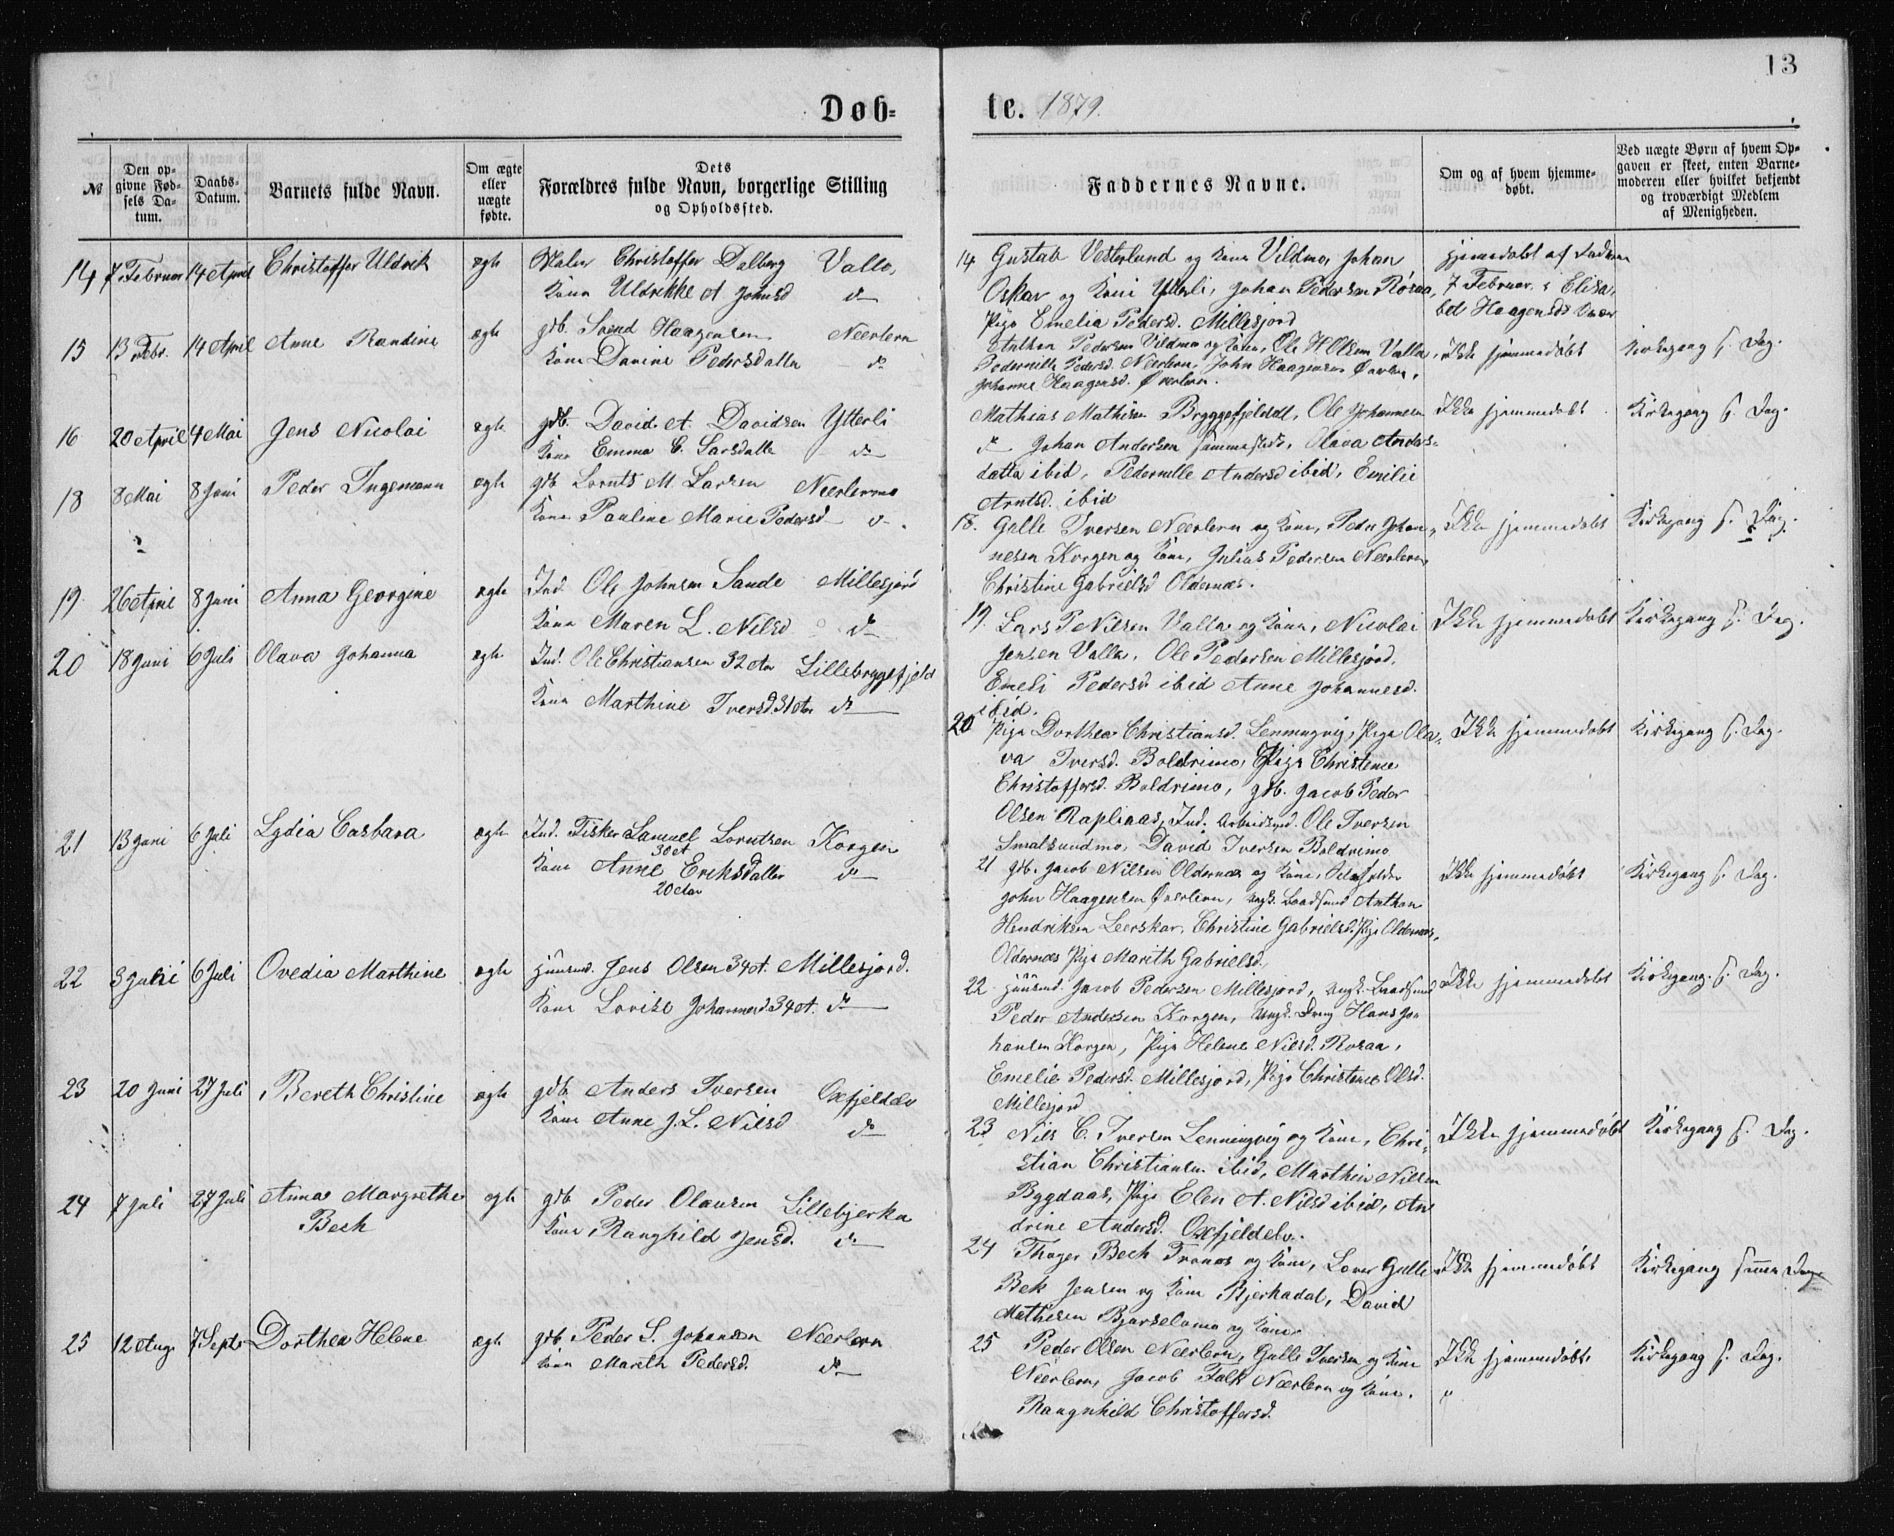 13
Døb=
te. 1879.
№
Den op-
givne Fød-
sels Da-
tum.
Daabs-
Datum.
Barnets fulde Navn.
Om ægte
eller
uægte
fødte.
Dets
Forældres fulde Navn, borgerlige Stilling
og Opholdssted.
Faddernes Navne.
Om og af hvem hjemme-
døbt.
Ved uægte Børn af hvem Op-
gaven er skeet, enten Barne-
moderen eller hvilket bekjendt
og troværdigt Medlem
af Menigheden.
14 7 Februar 14 April Christoffer Uldrik ægte Christoffer Dalberg Valla
Kone Uldrikke A Johnsd do
14 Gustab Vesterlund og Kone Vildmo, Johan
Oskar og Kone Ytterli, Johan Pedersen Røsaa,
Pige Emelia Pedersd. Millesjord
hjemmedøbt af
7 Februar. Elisa-
bet Haagensd
15 13 Febr. 14 April Anne Randine ægte gdb. Svend Haagensen Neerlern
Kone Davine Pedersdatter do
Anthon Pedersen Vildmo og Kone, Ole H Olsen Valla,
Pedernille Pedersd. Neerlern, John Haagensen Øverlern,
Johanna Haagensd. Øverlern.
Ikke hjemmedøbt
Kirkegang s. Dag.
16 20 April 4 Mai Jens Nicolai ægte gdb. David A. Davidsen Ytterli
Kone Emma C. Larsdatter do
Mathias Mathisen Bryggefjeldal, Ole Johannesen
do Johan Andersen sammesteds, Olava Anders-
datter ibid, Pedernille Andersd ibid, Emilie
Arntsd. ibid
Ikke hjemmedøbt
Kirkegang s. Dag.
18 8 Mai 8 Juni Peder Ingemann ægte gdb Lornts M. Larsen Neerlernmo
Kone Pauline Marie Pedersd do
18. Gulle Iversen Neerlern og Kone, Peder Johan-
nesen Korgen og Kone, Julius Pedersen Neerlern
Christine Gabrielsd Oldernæs.
Ikke hjemmedøbt
Kirkegang s. Dag.
19 26 April 8 Juni Anna Georgine ægte Ind. Ole Johnsen Sande Millesjord
Kone Maren L. Nilsd do
19. Lars P Nilsen Valla og Kone, Nicolai
Jensen Valla, Ole Pedersen Millesjord.
Emeli Pedersd ibid Anne Johannesd.
ibid.
Ikke hjemmedøbt
Kirkegang s. Dag.
20 18 Juni 6 Juli Olava Johanna ægte Ind. Ole Christiansen 32 Aar Lillebryggefjeld
Kone Marthine Iversd. 31 Aar do
20 Pige Dorthea Christiansd. Lenningvig, Pige Ola-
va Iversd. Boldrimo, Pige Christense
Christoffersd. Boldrimo, gdb. Jacob Peder
Olsen Rapliaas, Ind. Arbeidsmd. Ole Iversen
Smalsundmo, David Iversen Boldrimo
Ikke hjemmedøbt
Kirkegang s. Dag.
21 13 Juni 6 Juli Lydia Casbara ægte Ind. Fisker Samuel Lorntsen Korgen
30 A
Kone Anne Eriksdatter do
20 Aar
21 gdb. Jacob Nilsen Oldernæs og Kone,
John Haagensen Øverlern, ungk. Baadsmd Anthon
Hendriksen Leerskar, Christine Gabrielsd. Pige Oldernæs,
Oldernæs Pige Marith Gabrielsd.
Ikke hjemmedøbt
Kirkegang s. Dag.
22 3 Juli 6 Juli Ovedia Marthine ægte huusmd. Jens Olsen 34 A. Millesjord.
Kone Lovise Johannesd. 34 A. do
22 huusmd. Jacob Pedersen Millesjord, ungk. Baadsmd
Peder Andersen Korgen, ungk. Dreng Hans Jo-
hansen Korgen, Pige Helene Nilsd. Røsaa,
Emelie Pedersd. Millesjord, Pige Christense Olsd.
Millesjord
Ikke hjemmedøbt
Kirkegang. s. Dag.
23 20 Juni 27 Juli Bereth Christine ægte gdb. Anders Iversen Oxfjeldelv
Kone Anne J. L. Nilsd do
23 Nils C. Iversen Lenningvig og Kone, Chri-
stian Christiansen ibid, Marthin Nilsen
Bygdaas, Pige Elen A. Nilsd ibid, An-
drine Andersd. Oxfjeldelv.
Ikke hjemmedøbt
Kirkegang s. Dag.
24 7 Juli 27 Juli Anna Margrethe ægte gdb Peder Olausen Lillebjerka
Bech
Kone Ranghild Jensd. do
24 Thoger Bech Tronæs og Kone, Gulle
Bek Jensen og Kone Bjerkadal, David
Mathisen Bjurselvmo og Kone
Ikke hjemmedøbt
Kirkegang samme Dag
25 12 Aug 7 Septr Dorthea Helene ægte gdb Peder S. Johansen Neerlern
Kone Marith Pedersd. do
25 Peder Olsen Neerlern, Gulle Iversen og Kone
Neerlern, Jacob Falk Neerlern og Kone,
Rangnhild Christoffersd.
Ikke hjemmedøbt
Kirkegang s. Dag.